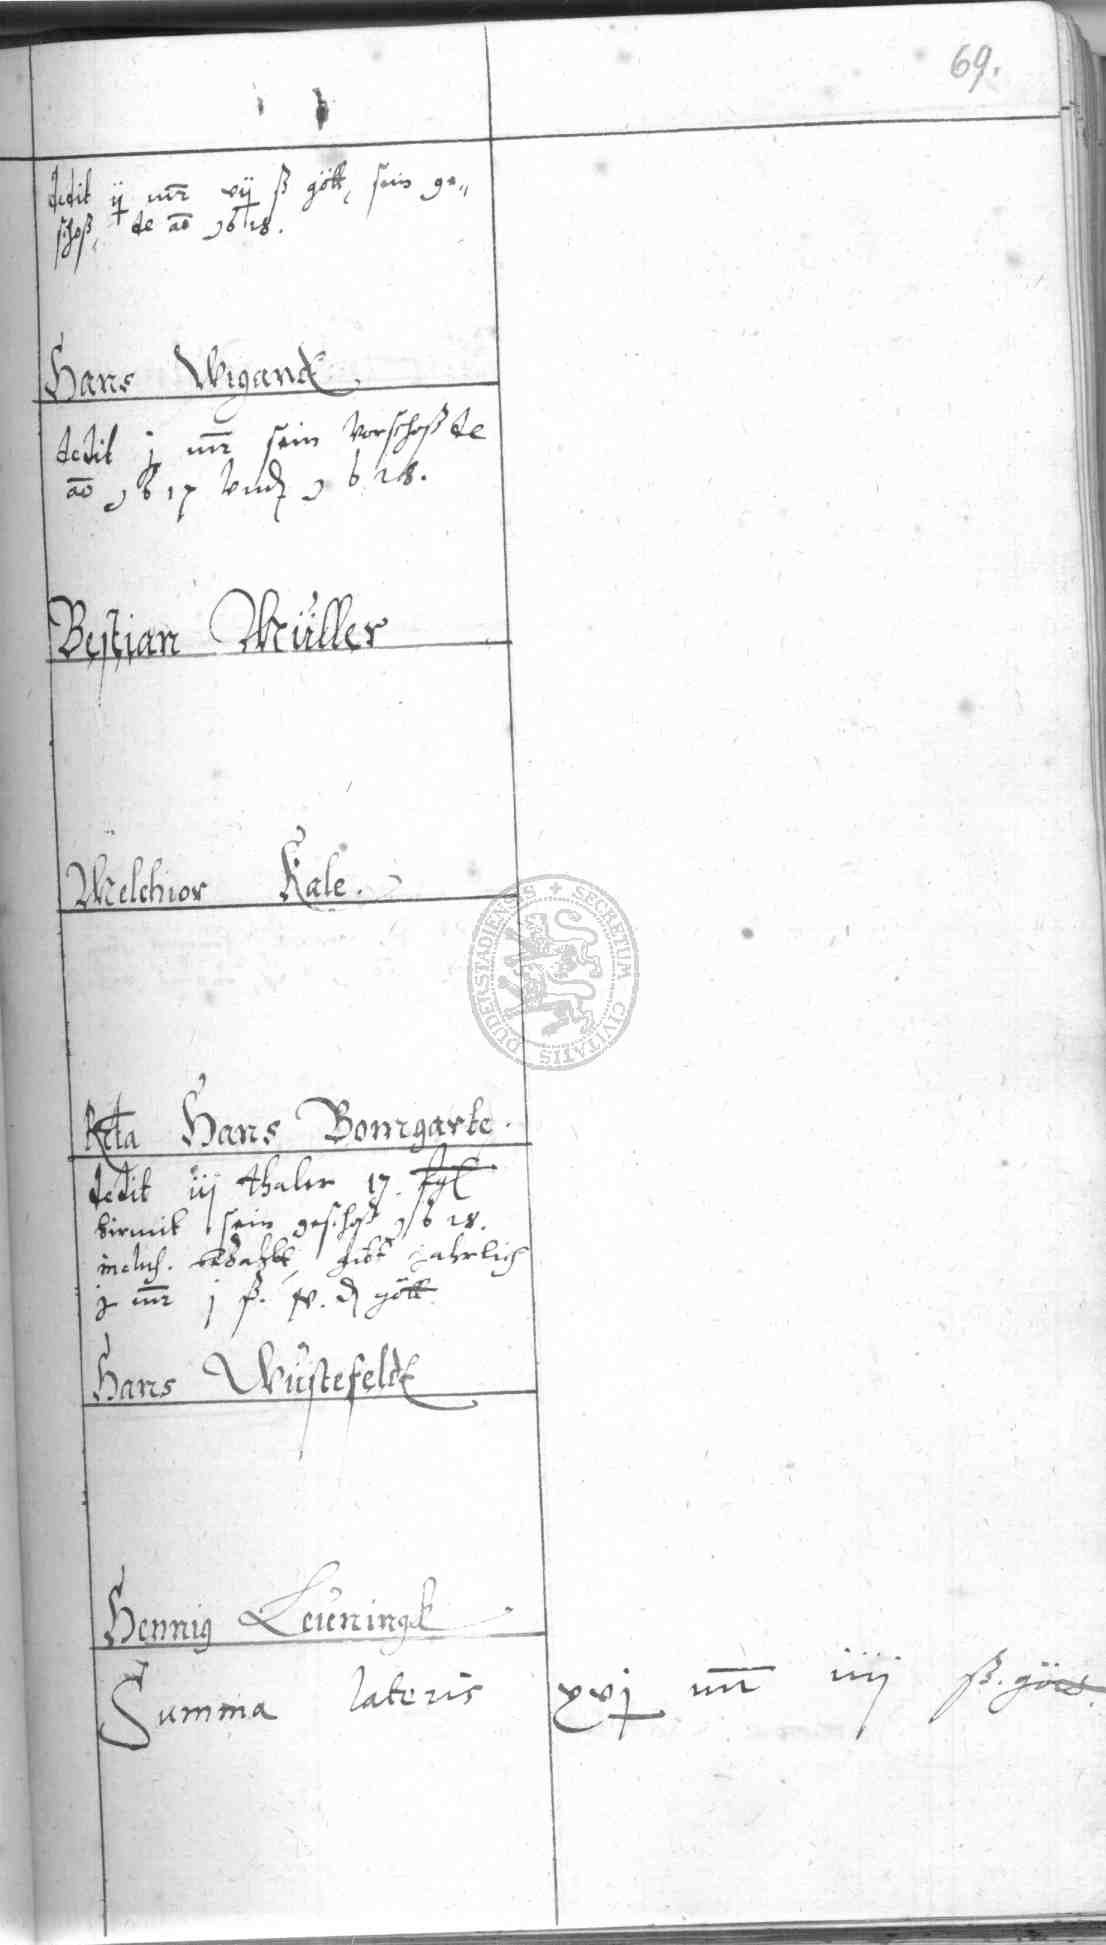 69.
dedit ij mr vij ß gött, sein ge„
schoß, de ao 1618.
Hans Wigandt
dedit j mr sein Vorschoß de
ao 1617 Vnd 1618.
Bestian Müller
Melchior Kale.
Hans Bomgarte.
dedit iij thaler 17.
hirmit sein geschoß 1618.
inclus. bezahlt, gibt jahrlich
j mr j ß. d gött
Hans Wüstefeldt
Hennig Leuningk
Summa lateris xvj mr iiij ß. gött.
DUDERSTADIENSIS + SECRETUM CIVITATIS